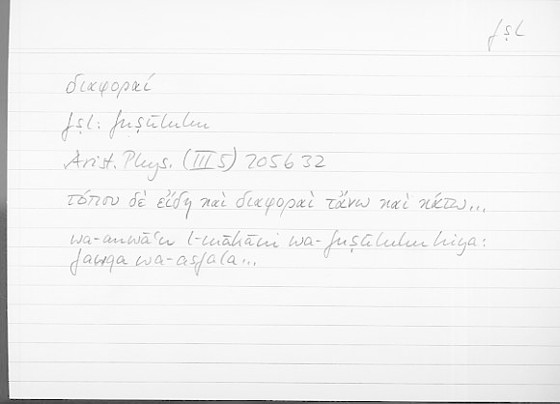 fṣl
διαφοραί
fṣl: fuṣūluhu
Arist. Phys. (III 5) 205b32
τόπου δὲ εἴδη καὶ διαφοραὶ τἄνω καὶ κάτω...
wa-anwāʿu l-makāni wa-fuṣūluhu hiya:
fawqa wa-asfala...